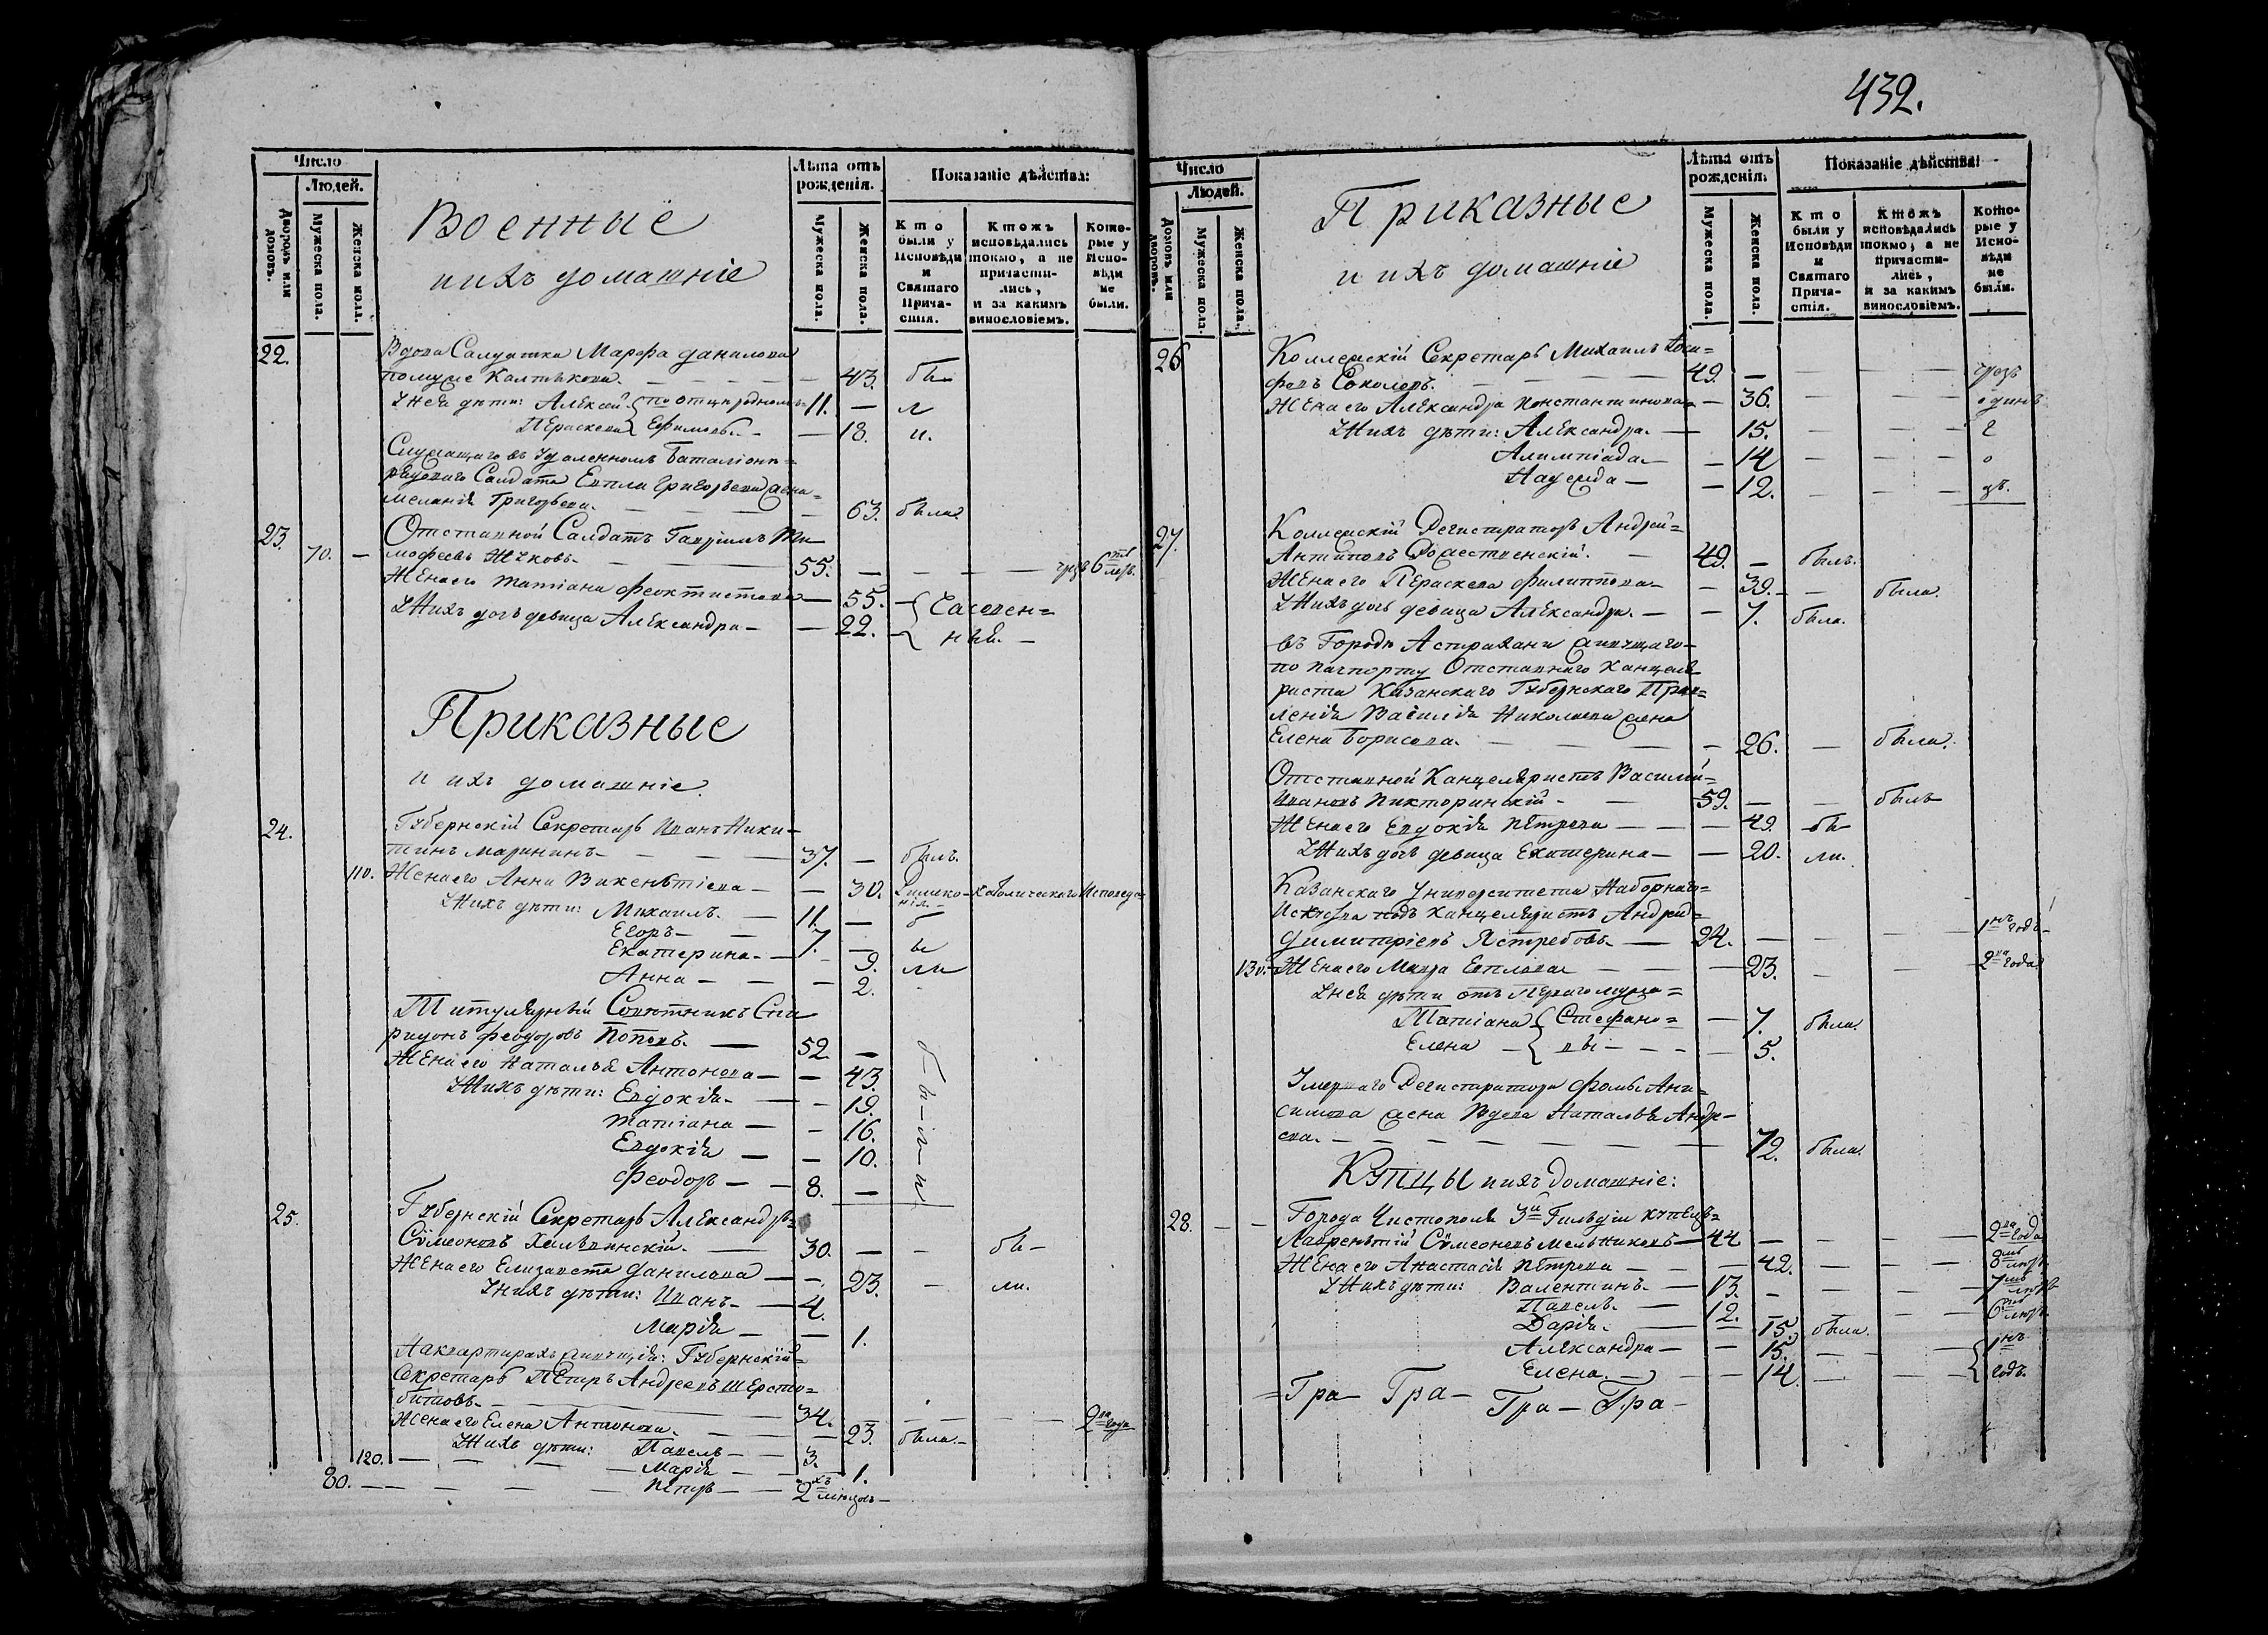 432.
Число
Людей.
Дворовъ или домовъ.
Мужеска пола.
Женска пола.
Военные
и ихъ домашніе
Лѣта отъ рожденія.
Мужеска пола.
Женска пола.
Показаніе дѣйства:
Кто были у Исповѣди и Святаго Причастія.
Ктожъ исповѣдались токмо, а не причастились, и за какимъ винословіемъ.
Которые у Исповѣди не были.
22. Вдова Салдатка Марфа Данилова
по муже Калтыкова. — — — 43. бы
У нея дѣти: Алексѣй по отцѣ родномъ 11. — л
Пераскева Ефимовы. — — 18. и.
Служащаго въ Удаленномъ Баталіоне=
рядоваго Салдата Евпла Григорьева жена=
Меланія Григорьева. — — 63. была.
23. Отставной Салдатъ Гавріилъ Ти
70. — мофеевъ Жуковъ. — — 55. — — — чрезъ 6ть лѣтъ.
Жена его Татіана Феоктистова — — 55. — Часовен=
У нихъ дочь девица Александра — — 22. — ный. —
Приказные
и ихъ домашніе.
24. Губернскій Секретарь Иванъ Ники=
тинъ Марининъ — — — 37. — былъ.
110. Жена его Анна Викентіева — — 30. Римско-Католическаго Исповеда=
нія. —
У нихъ дѣти: Михаилъ. — 11. — б
Егоръ — — 7. — ы
Екатерина. — — 9. ли
Анна — — — 2.
Титулярный Совѣтникъ Спи
ридонъ Феодоровъ Поповъ. — 52 —
Жена его Наталья Антонова — — 43.
У нихъ дѣти: Евдокія — — 19.
Татіана — — 16.
Евдокія — — 10.
Феодоръ — — 8. —
бы—ли—и
25. Губернскій Секретарь Александръ=
Сѵмеоновъ Хальвинскій. — 30. — — бы —
Жена его Елизавета Данилова — — 23. — ли.
У нихъ дѣти: Иванъ — — 4.
Марія — — 1.
На квартирахъ живущія: Губернскій=
Секретарь Петръ Андреевъ Шерсто=
битовъ. — — — 34. — — — 2ва года
Жена его Елена Антонова. — — 23. была. —
У нихъ дѣти: Павелъ — — 3.
120. — — — — Марія — — 1.
80. — — — — Петръ — — 2хъ мѣсяцовъ —
Число
Людей.
Домовъ или дворовъ.
Мужеска пола.
Женска пола.
Приказные
и ихъ домашніе
Лѣта отъ рожденія.
Мужеска пола.
Женска пола.
Показаніе дѣйства:
Кто были у Исповѣди и Святаго Причастія.
Ктожъ исповѣдались токмо, а не причастились, и за какимъ винословіемъ.
Которые у Исповѣди не были.
26 Коллежскій Секретарь Михаилъ Іоси=
фовъ Соколовъ. — — — 49. — — — чрезъ
Жена его Александра Константинова — — 36. — — одинъ
У нихъ дѣти: Александра. — — 15. — — г
Алимпіада — — 14 — — о
Надежда — — 12. — — дъ.
27. Коллежскій Регистраторъ Андрей=
Антиповъ Рожественскій. — 49. — былъ.
Жена его Пераскева Филиппова — — 39. — — была.
У нихъ дочь девица Александра. — — 7. была.
въ Городѣ Астрахани живущаго=
по пачпорту Отставнаго Канцеля
риста Казанскаго Губернскаго Прав=
ленія Василія Николаева жена
Елена Борисова. — — — 26. — была.
Отставной Канцеляристъ Василий=
Ивановъ Викторинскій — — 59. — — былъ
Жена его Евдокія Петрова — — — 49. бы
У нихъ дочь девица Екатерина — — 20. ли.
Казанскаго Университета Наборнаго=
Искусва подъ Канцеляристъ Андрей=
Димитріевъ Ястребовъ. — 24. — — — 1нъ годъ —
130. Жена его Мавра Евплова — — 23. — — 2ва года.
У нея дѣти отъ Перваго мужа=
Татіана Стефано= — 7. была.
Елена — вы — — — 5.
Умершаго Регистратора Фомы Ани=
симова жена Вдова Наталья Андре—
ева. — — — — 72. была.
Купцы и ихъ домашніе:
28. — — Города Чистополя 3й Гильдіи купецъ=
Лаврентій Сѵмеоновъ Мельниковъ — 44 — — — 2ва года
Жена его Анастасія Петрова — — — 42. — — — 8мь лѣтъ
У нихъ дѣти: Валентинъ. — 13. — — — 7мь лѣтъ
Павелъ. — 12. — — — 6ть лѣтъ
Дарія. — — 15. была.
Александра — — 15. — — 1нъ
Елена. — — 14. — — годъ.
=Гра— Гра— Гра— Гра—